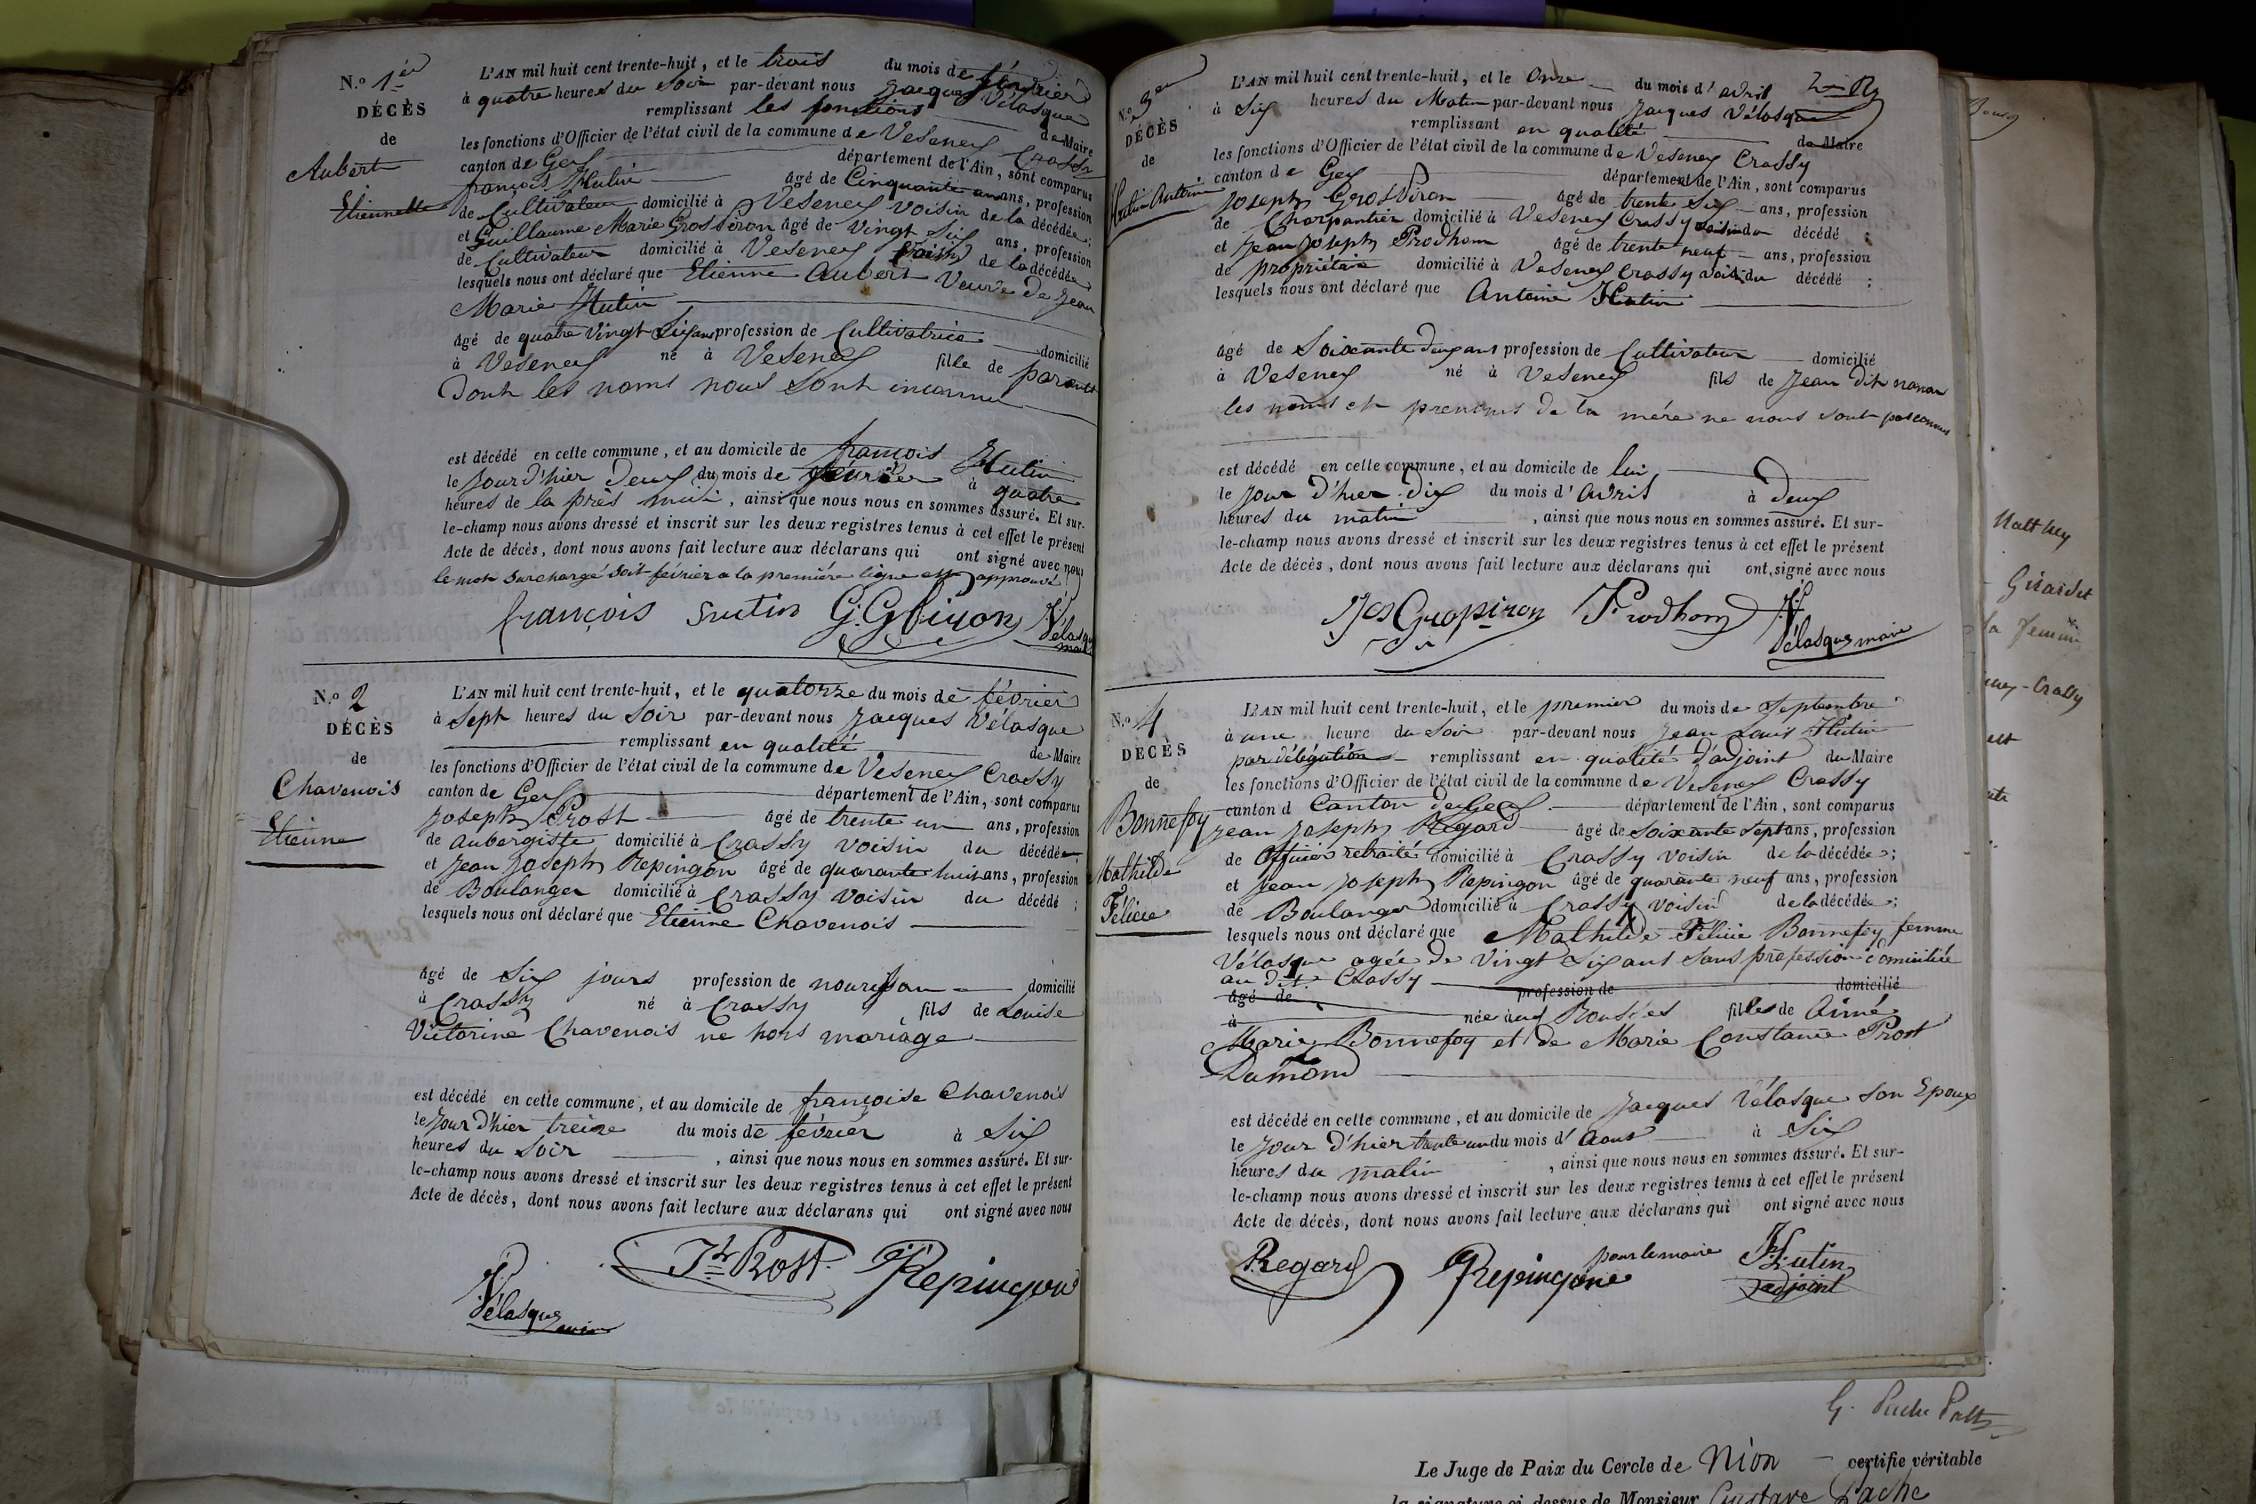 N.º 1er
DÉCÈS
de
Aubert
Etiennette
L'AN mil huit cent trente-huit, et le trois du mois de février
à quatre heures du soir par-devant nous Jacques Vélasque
remplissant les fonctions de Maire
les fonctions d'Officier de l'état civil de la commune de Vesenex Crassy
canton de Gex département de l'Ain, sont comparus
françois Hutin âgé de Cinquante ans, profession
de Cultivateur domicilié à Vesenex voisin de la décédée;
et Guillaume Marie Grossiron âgé de vingt six ans, profession
de Cultivateur domicilié à Vesenex voisin de la décédée
lesquels nous ont déclaré que Etienne Aubert Veuve de Jean
Marie Hutin
âgé de quatre vingt six ans profession de Cultivatrice domicilié
à Vesenex né à Vesenex fille de parents
Dont les noms nous sont inconnu
est décédé en cette commune, et au domicile de françois Hutin
le jour d'hier deux du mois de février à quatre
heures de la près midi, ainsi que nous nous en sommes assuré. Et sur-
le-champ nous avons dressé et inscrit sur les deux registres tenus à cet effet le présent
Acte de décès, dont nous avons fait lecture aux déclarans qui ont signé avec nous
le mot surchargé soit février a la première ligne est approuvé
françois Hutin G. G Siron J. Vélasque maire
N.º 2
DÉCÈS
de
Chavenois
Etienne
L'AN mil huit cent trente-huit, et le quatorze du mois de février
à Sept heures du Soir par-devant nous Jacques Vélasque
remplissant en qualité de Maire
les fonctions d'Officier de l'état civil de la commune de Vesenex Crassy
canton de Gex département de l'Ain, sont comparus
Joseph Prost âgé de trente un ans, profession
de aubergiste domicilié à Crassy voisin du décédé;
et Jean Joseph Repingon âgé de quarante huit ans, profession
de Boulanger domicilié à Crassy voisin du décédé;
lesquels nous ont déclaré que Etienne Chavenois
âgé de Six jours profession de nourisson domicilié
à Crassy né à Crassy fils de Louise
Victorine Chavenois né hors mariage
est décédé en cette commune, et au domicile de françoise Chavenois
le Jour d'hier treize du mois de février à Six
heures du Soir, ainsi que nous nous en sommes assuré. Et sur-
le-champ nous avons dressé et inscrit sur les deux registres tenus à cet effet le présent
Acte de décès, dont nous avons fait lecture aux déclarans qui ont signé avec nous
Jh Prost JJRepingon
J. Vélasque maire
N.º 3em
DÉCÈS
de
Hutin Antoine
L'AN mil huit cent trente-huit, et le Onze du mois d'avril
à Six heures du Matin par-devant nous Jacques Vélasque
remplissant en qualité de Maire
les fonctions d'Officier de l'état civil de la commune de Vesenex Crassy
canton de Gex département de l'Ain, sont comparus
Joseph GrosSiron âgé de trente Six ans, profession
de Charpantier domicilié à Vesenex Crassy voisin du décédé;
et Jean Joseph Prodhom âgé de trente neuf ans, profession
de propriétaire domicilié à Vesenex Crassy voisin du décédé;
lesquels nous ont déclaré que Antoine Hutin
âgé de Soixante deux ans profession de Cultivateur domicilié
à Vesenex né à Vesenex fils de Jean dit nanan
les noms et prenoms de la mére ne nous sont pas connus
est décédé en cette commune, et au domicile de lui
le Jour d'hier dix du mois d'avril à deux
heures du matin, ainsi que nous nous en sommes assuré. Et sur-
le-champ nous avons dressé et inscrit sur les deux registres tenus à cet effet le présent
Acte de décès, dont nous avons fait lecture aux déclarans qui ont signé avec nous
Jos Grosiron Prodhom J. Vélasque maire
N.º 4
DÉCÈS
de
Bonnefoy
Mathilde
Félicie
L'AN mil huit cent trente-huit, et le premier du mois de Septembre
à une heure du Soir par-devant nous Jean Louis Hutin
par délégation remplissant en qualité d'adjoint du Maire
les fonctions d'Officier de l'état civil de la commune de Vesenex Crassy
canton d Canton de Gex département de l'Ain, sont comparus
Jean Joseph Regard âgé de soixante sept ans, profession
de Officier retraité domicilié à Crassy voisin de la décédée;
et Jean Joseph Repingon âgé de quarante neuf ans, profession
de Boulanger domicilié à Crassy voisin de la décédée;
lesquels nous ont déclaré que Mathilde Félicie Bonnefoy femme
Vélasque agée de Vingt Six ans Sans profession domiciliée
au dit Crassy
âgé de profession de domicilié
à née aux Rousses fille de Aimé
Marie Bonnefoy et de Marie Constance Prost
Damond
est décédé en cette commune, et au domicile de Jacques Vélasque son Epoux
le Jour d'hier trente un du mois d'Aout à Six
heures du matin, ainsi que nous nous en sommes assuré. Et sur-
le-champ nous avons dressé et inscrit sur les deux registres tenus à cet effet le présent
Acte de décès, dont nous avons fait lecture aux déclarans qui ont signé avec nous
Regard JJRepingon pour le maire J. L. Hutin
adjoint
Matthey
Girardet
la femme
Crassy
G. Pache
Le Juge de Paix du Cercle de Nion certifie véritable
la signature ci-dessus de Monsieur Gustave Pache